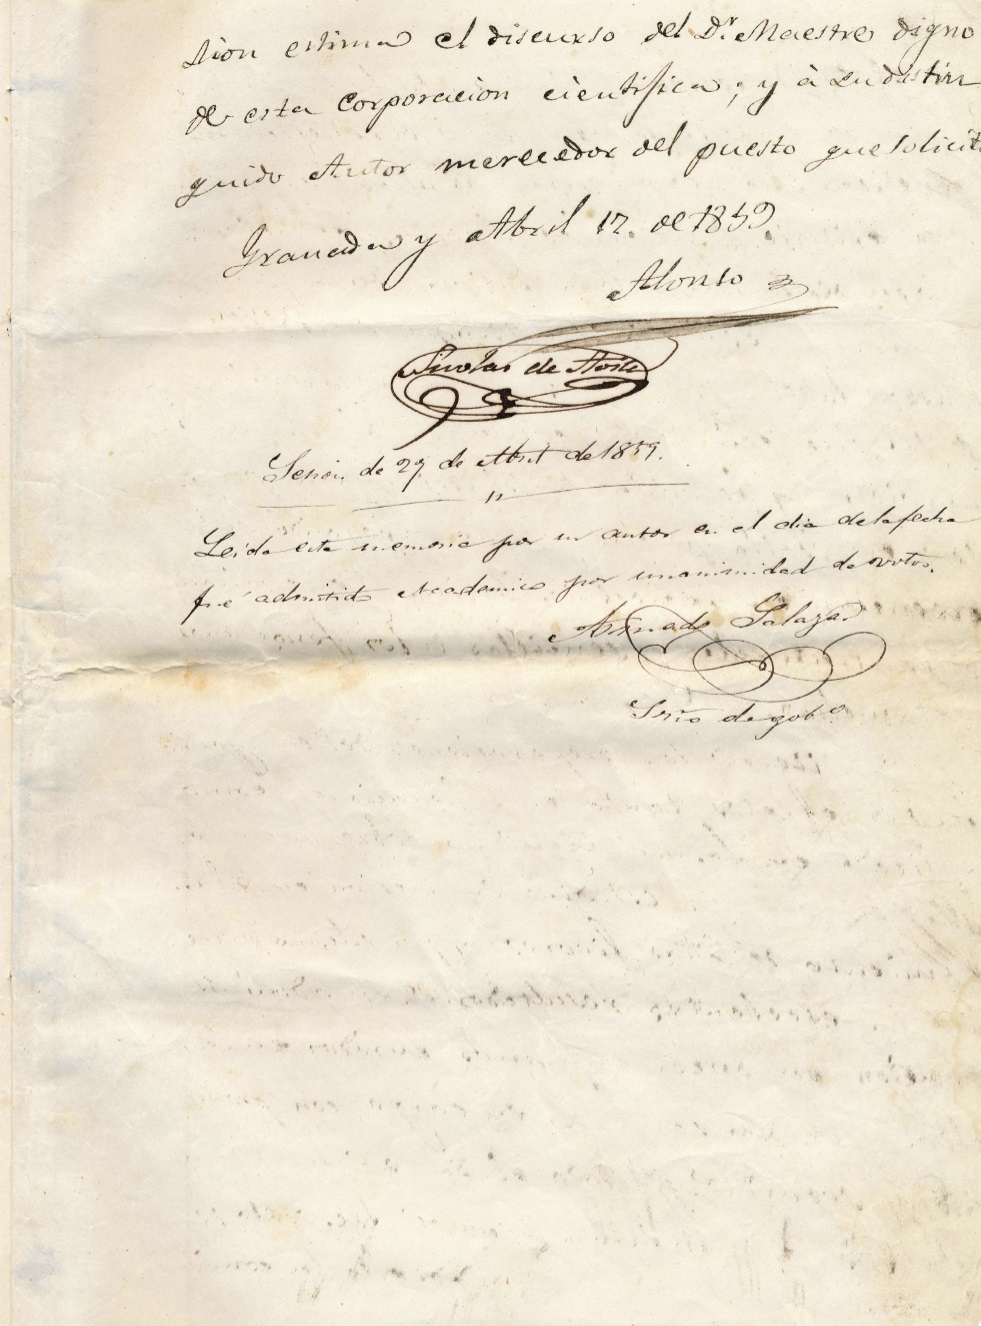 sion estima el discurso del Dr. Maestre digno
de esta Corporacion cientifica; y á su distin
guido Autor merecedor del puesto que solicita
Granada y Abril 12. de 1859.
Alonso
Nicolas de
Sesion de 27 de Abril de 1859.
Leida esta memoria por su autor en el dia de la fecha
fué admitido Academico por unanimidad de votos.
Salazar
Srio de gobo